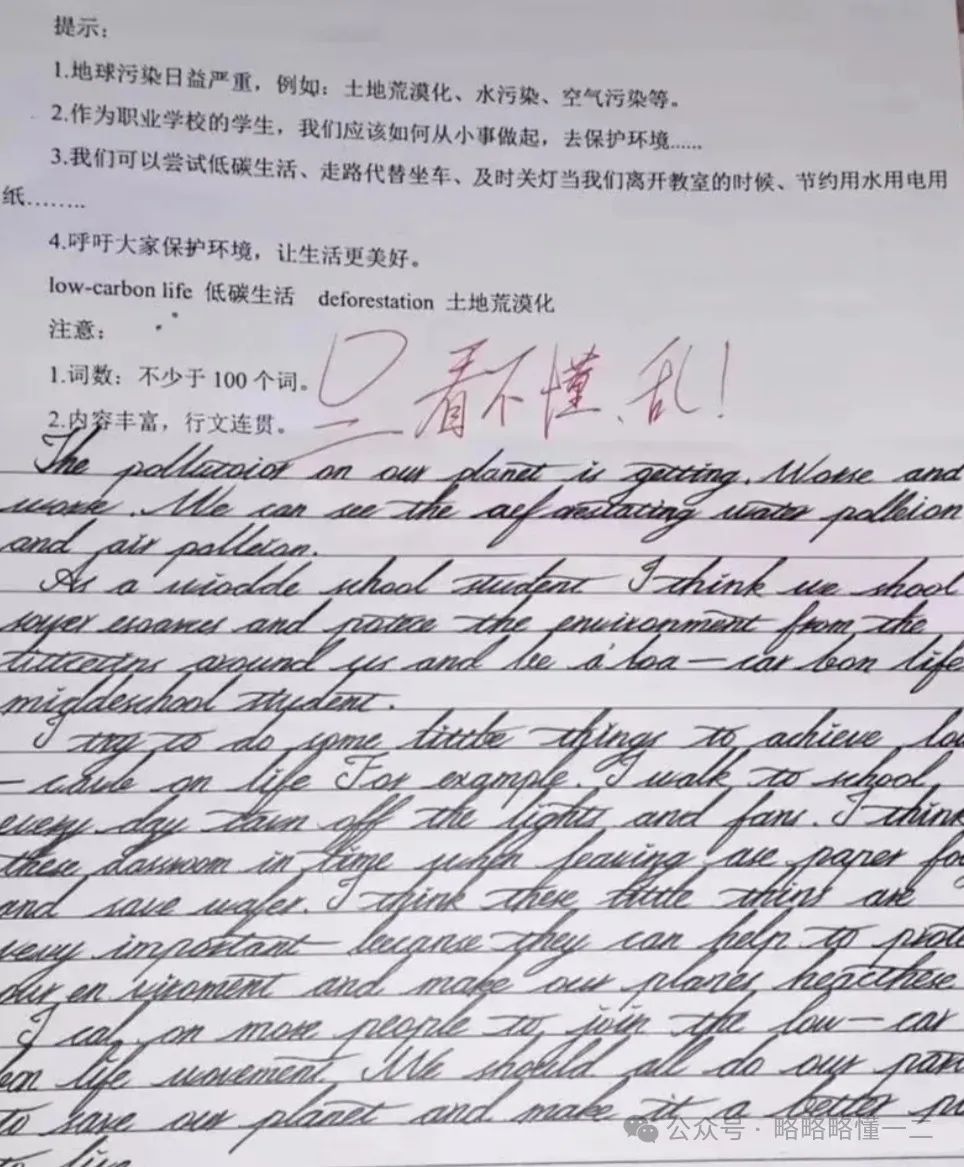 提示：
1.地球污染日益严重，例如：土地荒漠化、水污染、空气污染等。
2.作为职业学校的学生，我们应该如何从小事做起，去保护环境......
3.我们可以尝试低碳生活、走路代替坐车、及时关灯当我们离开教室的时候、节约用水用电用
纸........
4.呼吁大家保护环境，让生活更美好。
low-carbon life 低碳生活 deforestation 土地荒漠化
注意：
1.词数：不少于 100 个词。
2.内容丰富，行文连贯。
看不懂、乱！
The on our planet is getting. Worse and
. We can see the water
and air .
As a school student I think we shool
and the environment from the
around us and be a - car bon life
middeschool student.
I try to do some things to achieve
- on life For example. I walk to school
every day off the lights and fans. I think
these in time when leaving paper
and save water. I think these little thins are
very important because they can help to
our en viroment and make our
I cal on more people to join the low-car
life movement. We should all do our
to save our planet and make it a better
to live
公众号 · 略略略懂一二